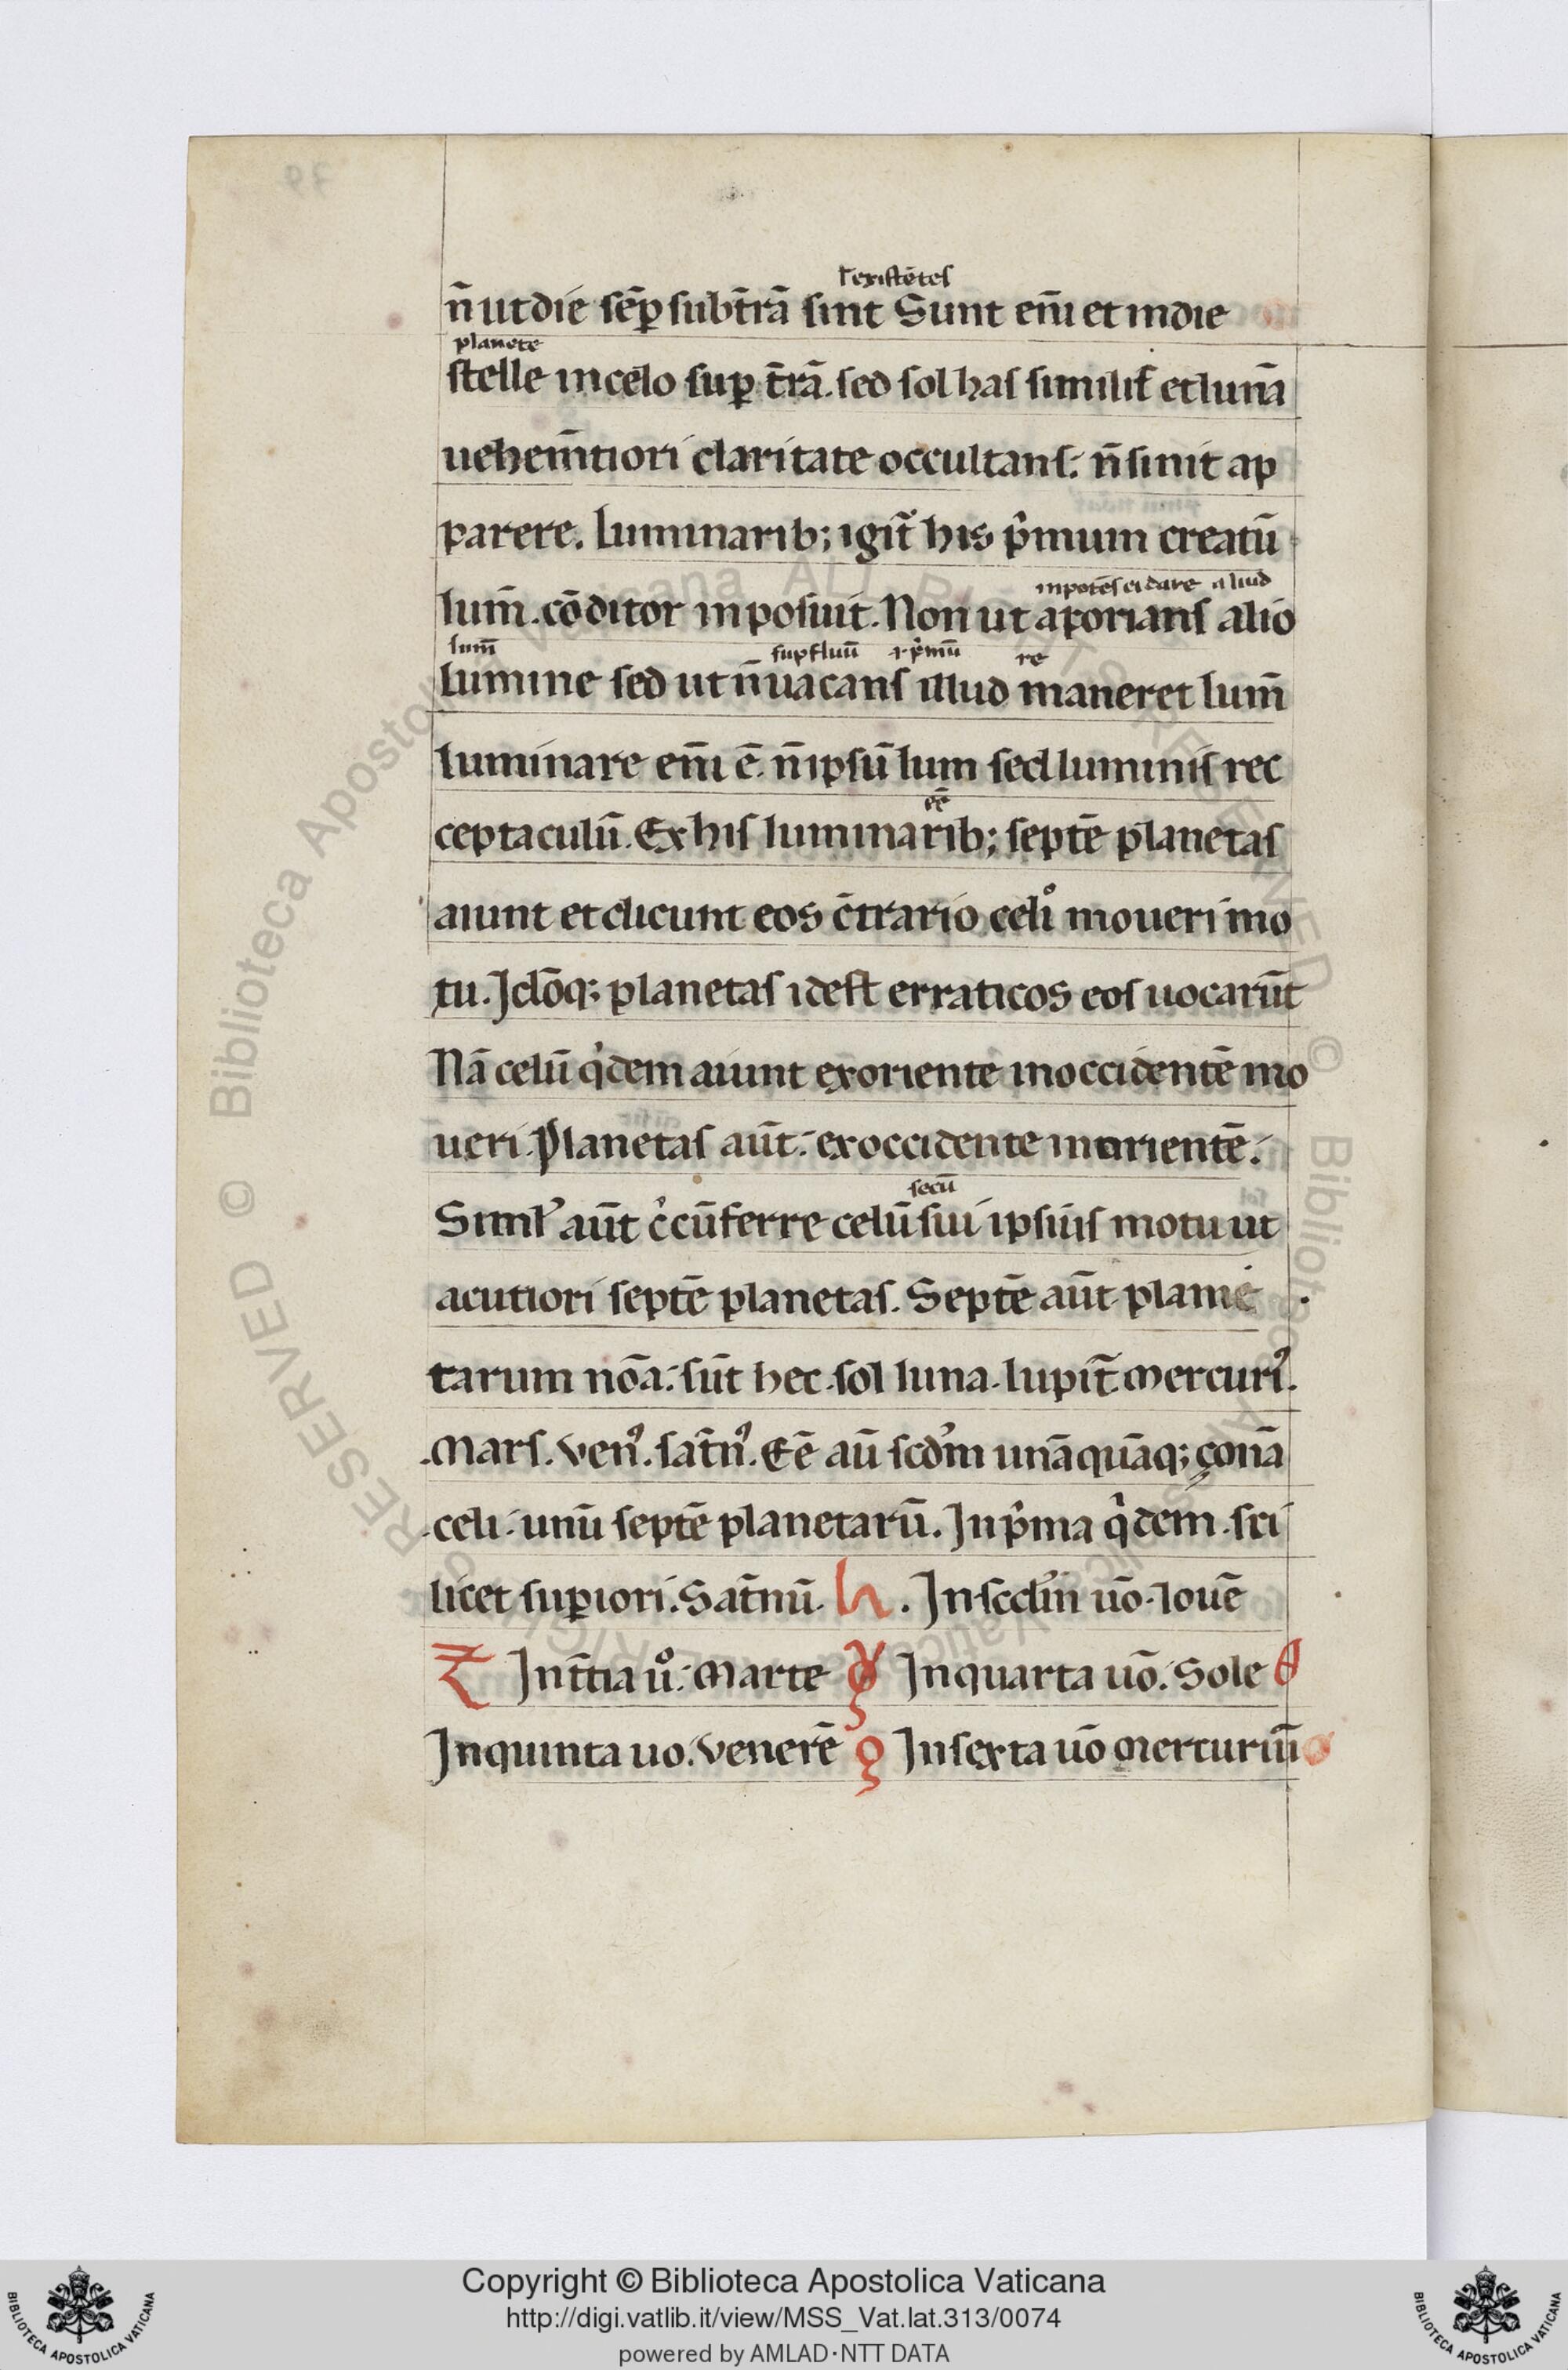 ł existētes
n̄ ut die sēp sub t̄rā sint Sunt em̄ et in die
planete
stelle in celo sup t̄rā. sed sol has similit̄ et lunā
uehem̄tiori claritate occultans. n̄ sinit ap
parere. Luminarib; igit̄ his p̍mum creatū
inpotēs ei dare aliud
lum̄. cōditor inposuit. Non ut aporians alio
lum̄ supfluū ⁊ p̍mū re
lumine sed ut n̄ uacans illud maneret lum̄
luminare em̄ ē. n̄ ipsū lum sed luminis rec
eē
ceptaculū. Ex his luminarib; septē planetas
aiunt et dicunt eos c̄trario celi° moueri mo
tu. Idōq; planetas idest erraticos eos uocarūt
Nā celū q̍dem aiunt ex oriente in occidentē mo
ueri. Planetas aūt. ex occidente in orientē.
secū
Simil' aūt c̍cūferre celū sui ipsius motu ut
acutiori septē planetas. Septē aūt plane
tarum nōa. sūt hec. sol luna. Iupit̄. Mercuri᾽.
.Mars. Ven᾽. sat̄n᾽. Eē aū scd̄m unāquāq; çonā
.celi. unū septē planetarū. In p̍ma q̍dem. sci
licet supiori. Sat̄nū. ♄. In scd̄m uō. Iouē
♃ In t̄tia u°. Marte ♂ In quarta uō. Sole
In quinta uo. Venerē ♀ In sexta uō Mercuriū
© Biblioteca Apostolica Vaticana ALL RIGHTS RESERVED © Biblioteca Apostolica Vaticana ALL RIGHTS RESERVED
Copyright © Biblioteca Apostolica Vaticana
http://digi.vatlib.it/view/MSS_Vat.lat.313/0074
powered by AMLAD·NTT DATA
BIBLIOTECA APOSTOLICA VATICANA
BIBLIOTECA APOSTOLICA VATICANA